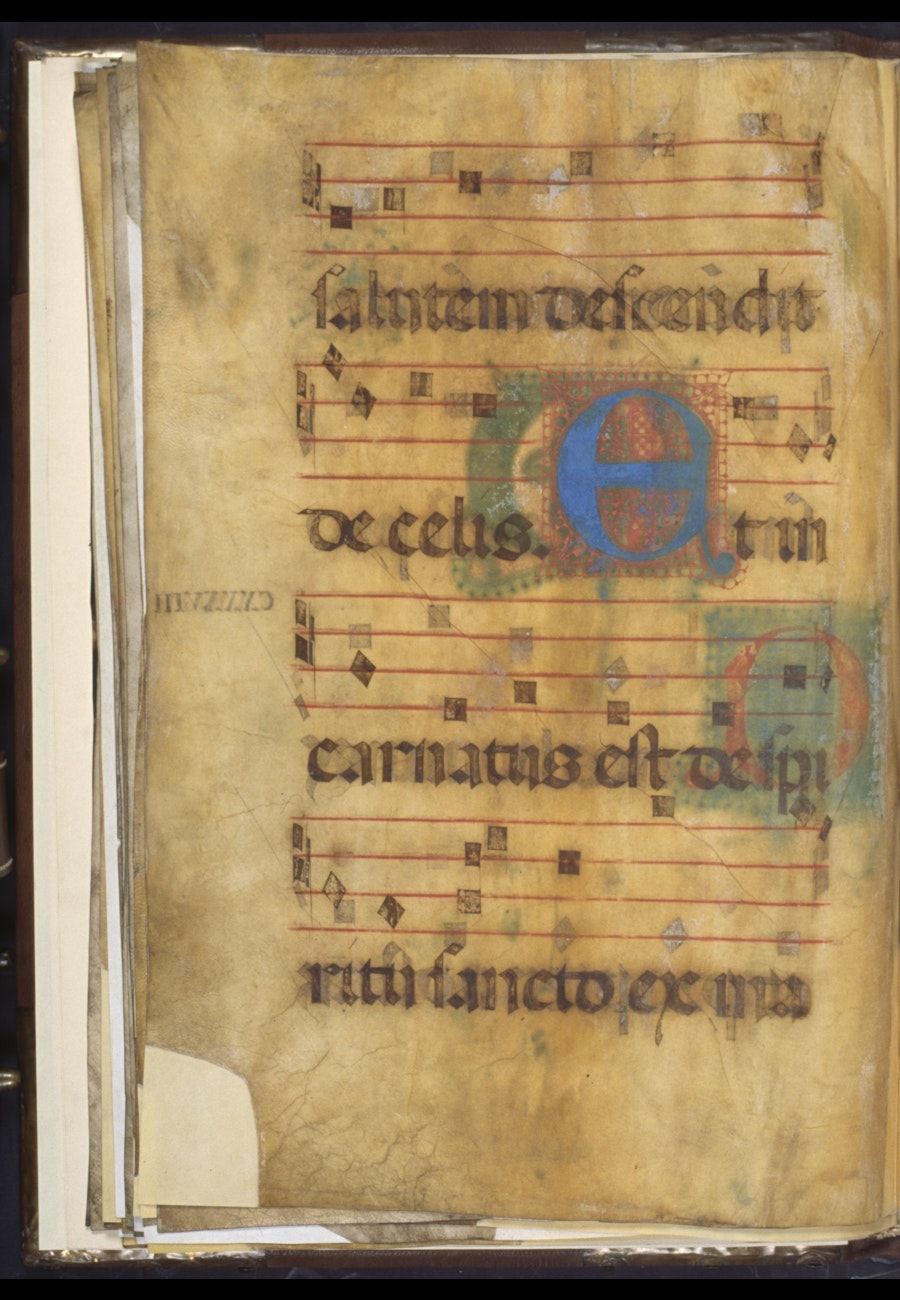 salutem descendit
de celis. Et in
carnatus est de spi
ritu sancto ex ma